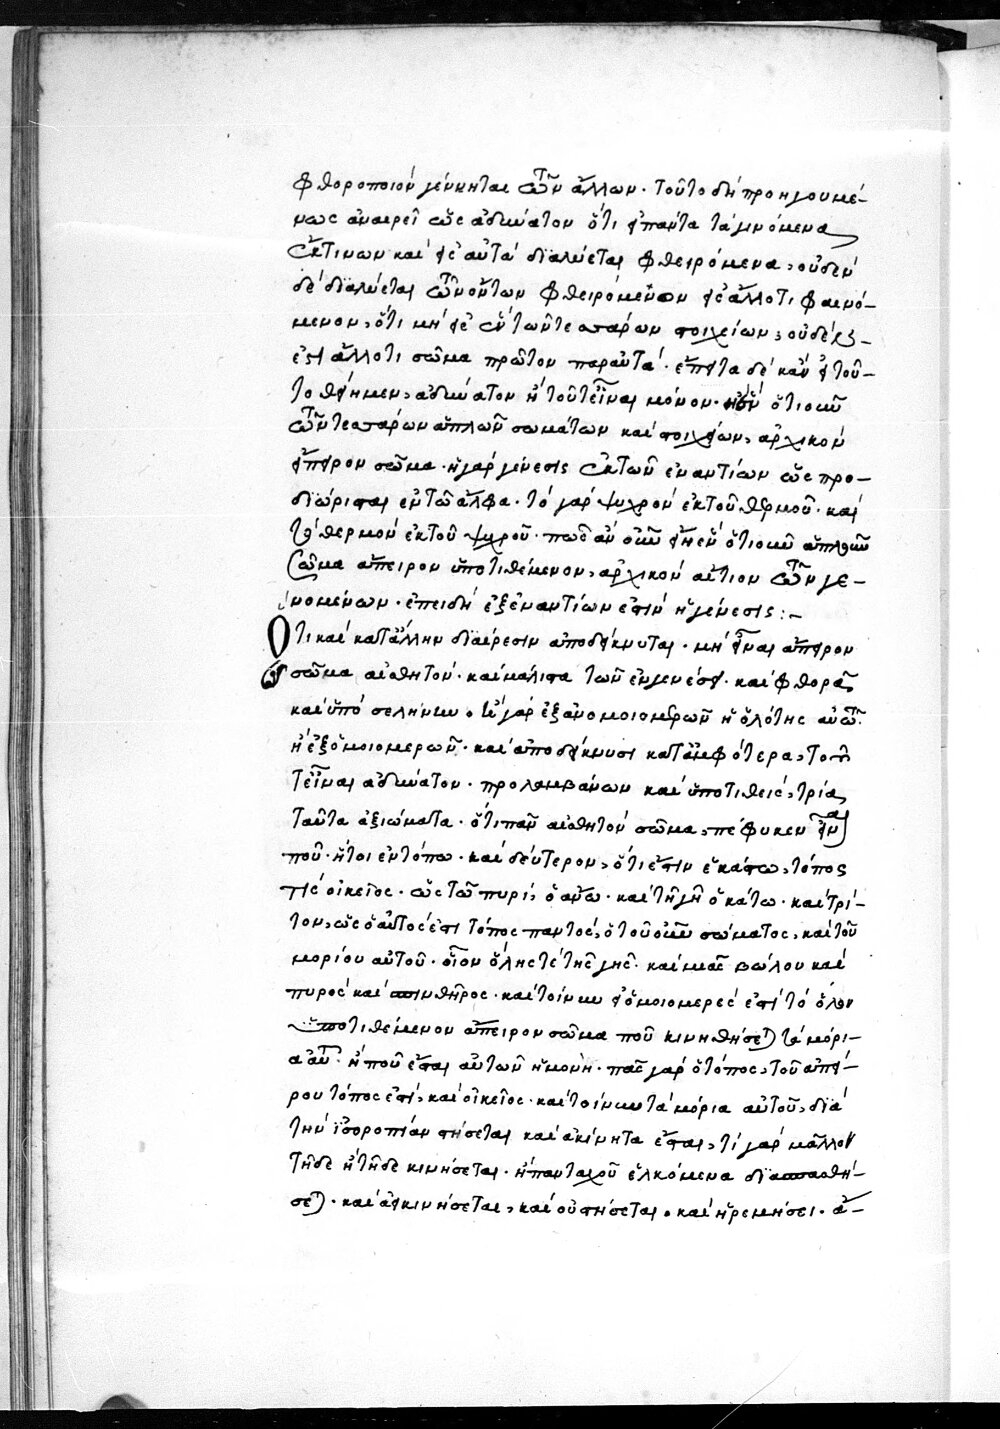 φθοροποιὸν γένηται τῶν ἄλλων· τοῦτο δὴ προηγουμέ-
νως ἀναιρεῖ ὡς ἀδύνατον ὅτι ἅπαντα τὰ γινόμενα
ἔκ τινων καὶ εἰς αὐτὰ διαλύεται φθειρόμενα, οὐδὲν
δὲ διαλύεται τῶν ὄντων φθειρόμενον εἰς ἄλλο τι φαινό-
μενον, ὅτι μὴ εἰς ἓν τῶν τεσσάρων στοιχείων, οὐδὲ
ἐστὶ ἄλλό τι σῶμα πρῶτον παρ αὐτά· ἔπειτα δὲ κἂν εἰ τοῦ-
το θείημεν, ἀδύνατον ἢ τοῦτ εἶναι μόνον· ἢ ἓν ὁτιοῦν
τῶν τεσσάρων ἁπλῶν σωμάτων καὶ στοιχείων, ἀρχικὸν
ἄπειρον σῶμα· ἡ γὰρ γένεσις ἐκ τῶν ἐναντίων ὡς προ-
διώρισται ἐν τῶ ἄλφα· τὸ γὰρ ψυχρὸν ἐκ τοῦ θερμοῦ· καὶ
τὸ θερμὸν ἐκ τοῦ ψυχροῦ· πῶς ἂν οὖν εἴη ἓν ὁτιοῦν ἁπλοῦν
σῶμα ἄπειρον ὑποτιθέμενον, ἀρχικὸν αἴτιον τῶν γε-
νομένων· ἐπειδὴ ἐξ ἐναντίων ἐστὶν ἡ γένεσις:-
Ὅτι καὶ κατ ἄλλην διαίρεσιν ἀποδείκνυται· μὴ εἶναι ἄπειρον
σῶμα αἰσθητόν· καὶ μάλιστα τῶν ἐν γενέσει· καὶ φθορᾷ
καὶ ὑπὸ σελήνην· εἰ γὰρ ἐξ ἀνομοιομερῶν ἡ ὁλότης αὐτῶν
ἢ ἐξ ὁμοιομερῶν· καὶ ἀποδείκνυσι κατ ἀμφότερα, τοῦ
τ εἶναι ἀδύνατον· προλαμβάνων καὶ ὑποτιθεὶς, τρία
ταῦτα ἀξιώματα· ὅτι πᾶν αἰσθητὸν σῶμα, πέφυκεν εἶναι
ποῦ· ἤτοι ἐν τόπω· καὶ δεύτερον, ὅτι ἔστιν ἑκάστω, τόπος
τὶς οἰκεῖος· ὡς τῶ πυρὶ, ὁ ἄνω· καὶ τῇ γῇ ὁ κάτω· καὶ τρί-
τον, ὡς ὁ αὐτὸς ἐστὶ τόπος παντὸς, ὁ τοῦ οὖν σώματος, καὶ τοῦ
μορίου αὐτοῦ· οἷον ὅλης τὲ τῆς γῆς· καὶ μιᾶς βώλου καὶ
πυρὸς καὶ σπινθῆρος· καὶ τοίνυν εἰ ὁμοιομερὲς ἐστὶ τὸ ὅλον
ὑποτιθέμενον ἄπειρον σῶμα ποῦ κινηθήσεται τὰ μόρι-
α αὐτοῦ· ἢ ποῦ ἔσται αὐτῶν ἡ μονή· πᾶς γὰρ ὁ τόπος, τοῦ ἀπεί-
ρου τόπος ἐστί, καὶ οἰκεῖος· καὶ τοίνυν τὰ μόρια αὐτοῦ, διὰ
τὴν ἰσοροπίαν στήσεται καὶ ἀκίνητα ἔσται, τί γὰρ μᾶλλον
τῇδε ἢ τῇδε κινήσεται· ἢ πανταχοῦ ἑλκόμενα διασπασθή-
σεται· καὶ ἀεικινήσεται, καὶ οὐ στήσεται· καὶ ἠρεμήσει· ἀ-